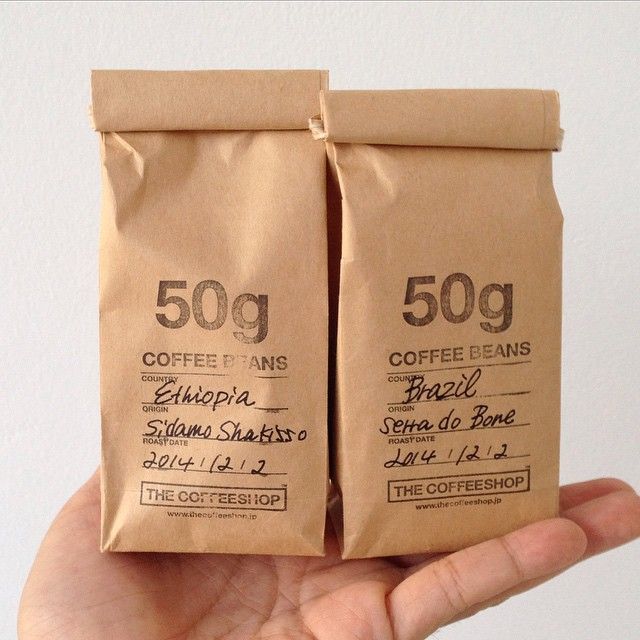 50g
COFFEE BEANS
COUNTRY
Ethiopia
ORIGIN
Sidamo Shakisso
ROAST DATE
2014/12/2
THE COFFEESHOP
www.thecoffeeshop.jp
50g
COFFEE BEANS
COUNTRY
Brazil
ORIGIN
Serra do Bone
ROAST DATE
2014/12/2
THE COFFEESHOP
www.thecoffeeshop.jp